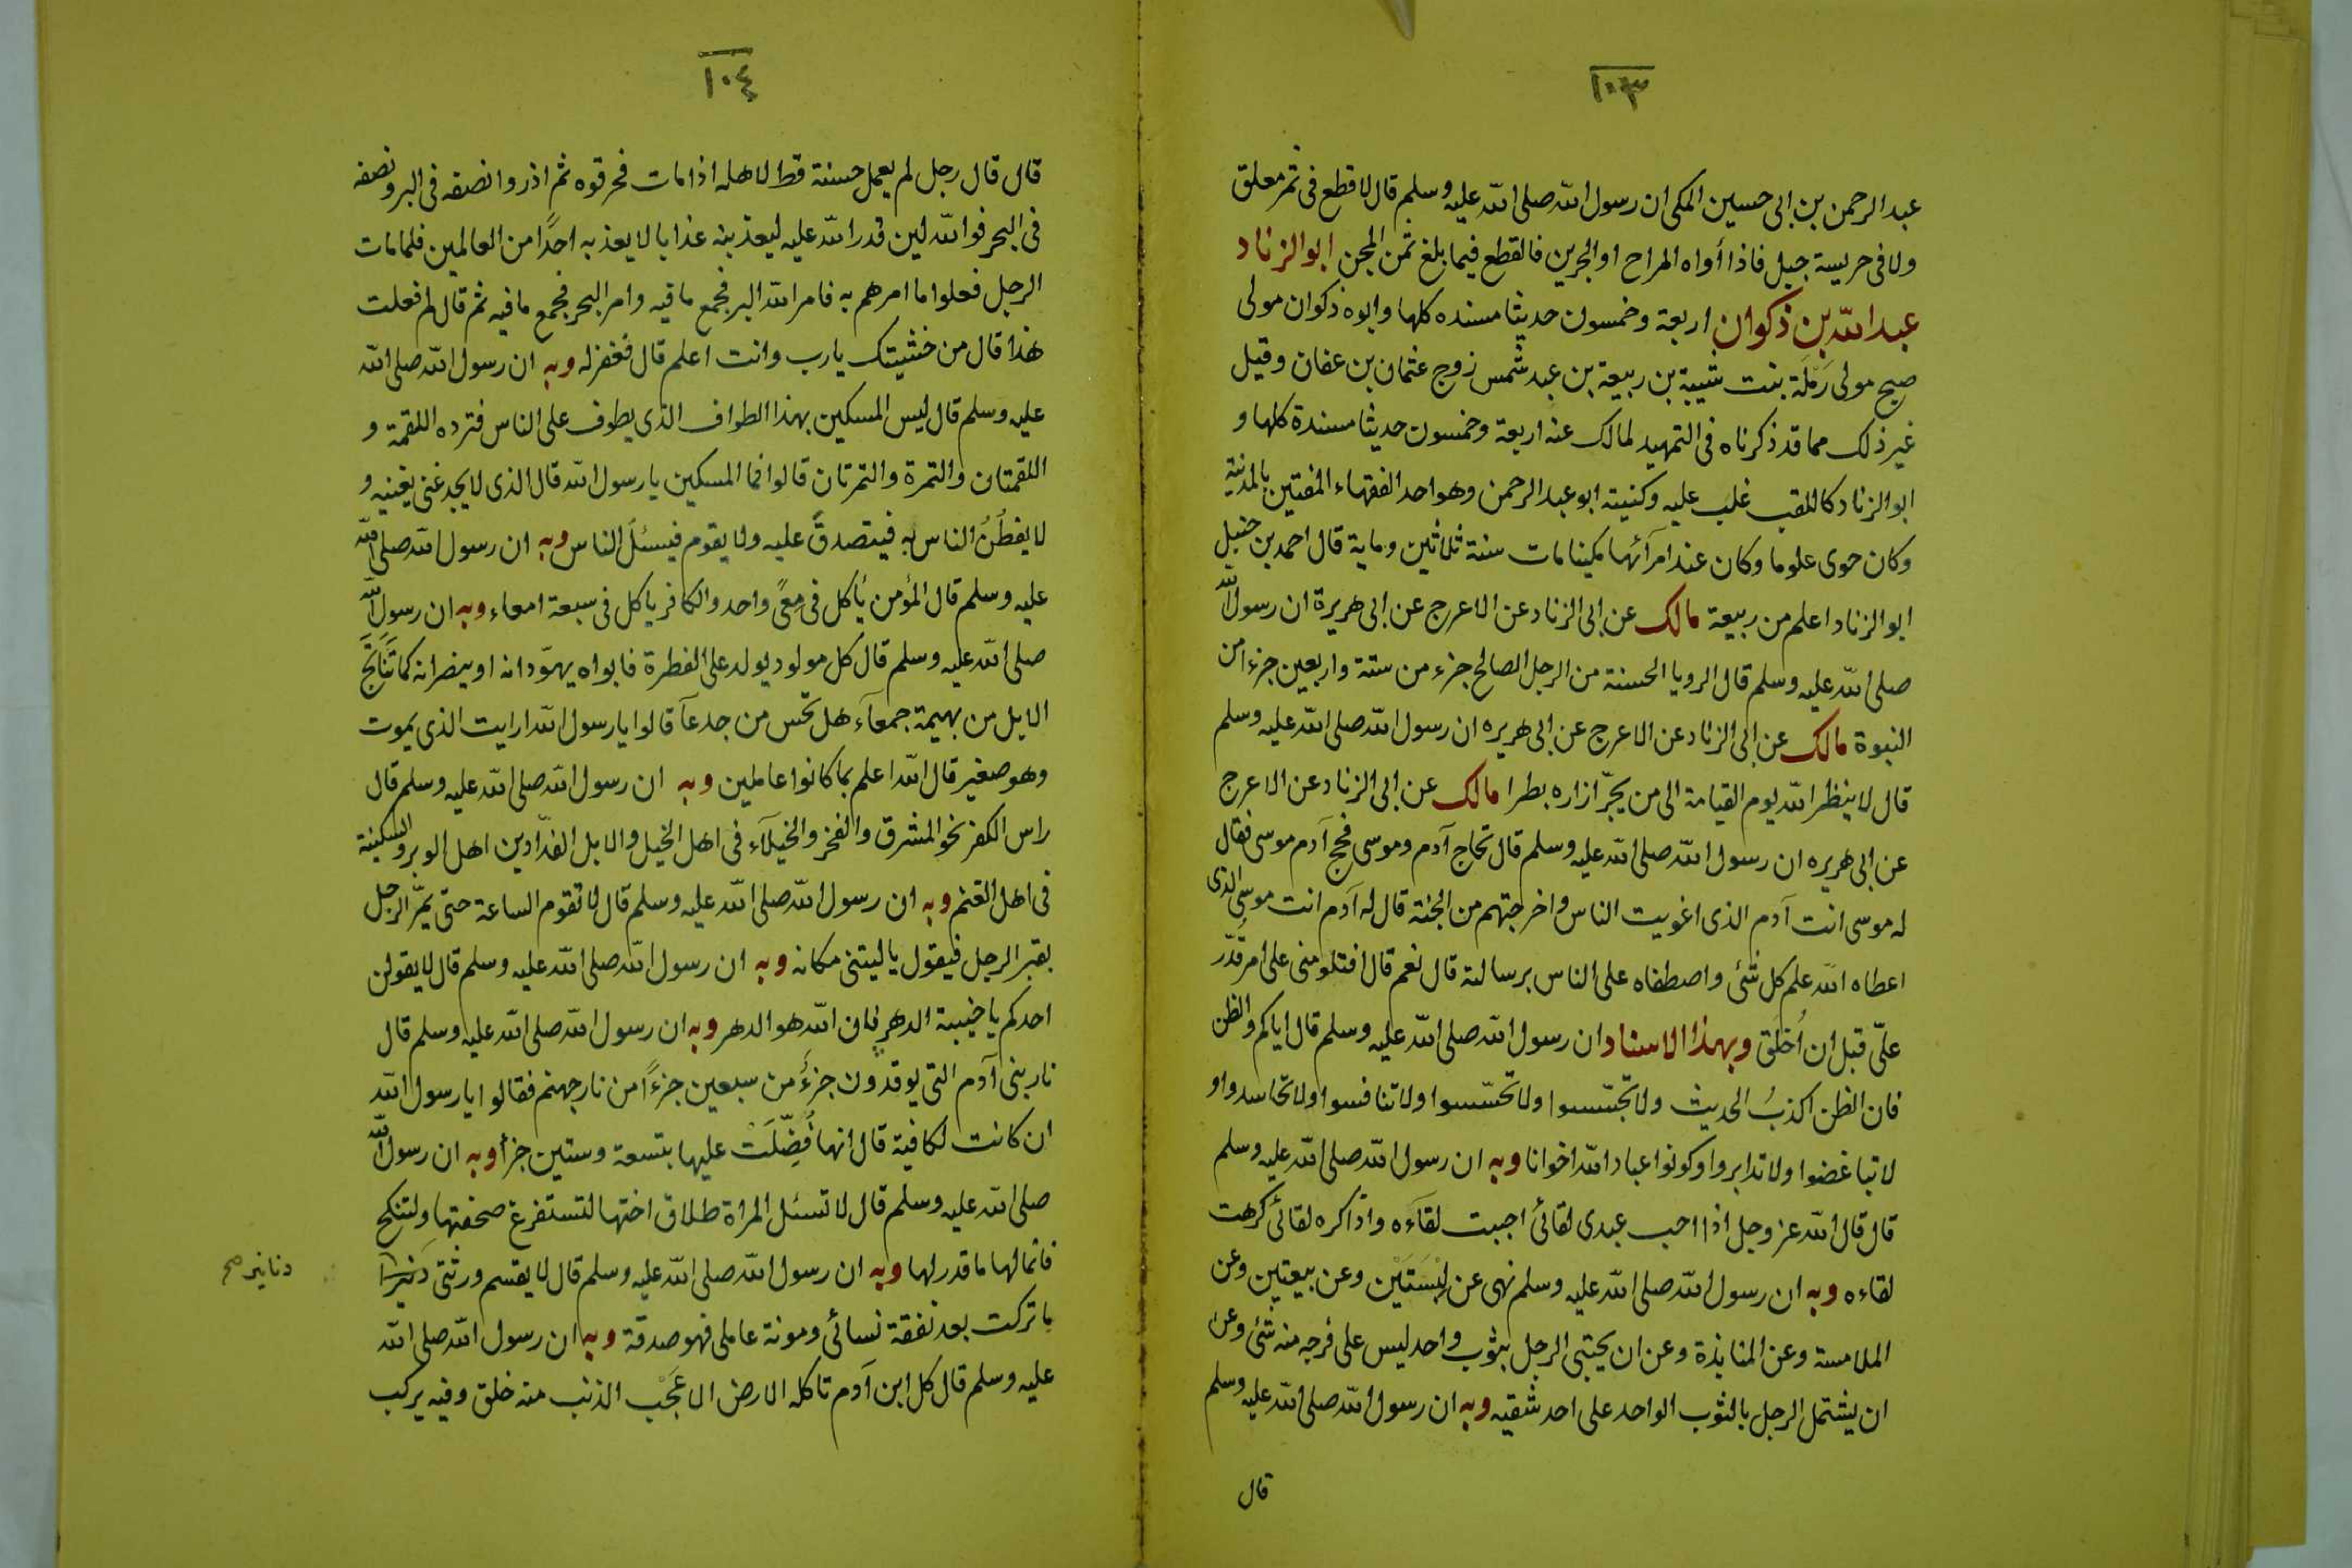 ١٠٣
عبد الرحمن بن ابى حسين المكى ان رسول الله صلى الله عليه وسلم قال لا قطع فى ثمر معلق
ولا فى حريسة جبل فاذا أواه المراح او الجرين فالقطع فيما بلغ ثمن المجن ابو الزناد
عبد الله بن ذكوان اربعة وخمسون حديثا مسنده كلها وابوه ذكوان مولى
صبح مولى رَمْلَة بنت شيبة بن ربيعة بن عبد شمس زوج عثمان بن عفان وقيل
غير ذلك مما قد ذكرناه فى التمهيد لمالك عنه اربعة وخمسون حديثا مسندة كلها و
ابو الزناد كاللقب غلب عليه وكنيته ابو عبد الرحمن وهو احد الفقهاء المفتين بالمدينة
وكان حوى علوما وكان عند امرآئها مكينا مات سنة ثلاثين وماية قال احمد بن حنبل
ابو الزناد اعلم من ربيعة مالك عن ابى الزناد عن الاعرج عن ابى هريرة ان رسول الله
صلى الله عليه وسلم قال الرويا الحسنة من الرجل الصالح جزء من ستة واربعين جزء امن
النبوة مالك عن ابى الزناد عن الاعرج عن ابى هريره ان رسول الله صلى الله عليه وسلم
قال لا ينظر الله يوم القيامة الى من يجرّ ازاره بطرا مالك عن ابى الزناد عن الاعرج
عن ابى هريره ان رسول الله صلى الله عليه وسلم قال تحاج آدم وموسى فحج آدم موسى فقال
له موسى انت آدم الذى اغويت الناس واخرجتهم من الجنة قال له آدم انت موسى الذى
اعطاه الله علم كل شئ واصطفاه على الناس برسالته قال نعم قال افتلومنى على امر قُدّر
علىّ قبل ان اُخلَق وبهذا الاسناد ان رسول الله صلى الله عليه وسلم قال اياكم والظن
فان الظن اكذبُ الحديث ولا تجسّسوا ولا تحسّسوا ولا تنافسوا ولا تحاسدوا و
لا تباغضوا ولا تدابروا وكونوا عباد الله اخوانا وبه ان رسول الله صلى الله عليه وسلم
قال قال الله عز وجل اذا احب عبدى لقائى احببت لقآءه واذا كره لقائى كرهت
لقاءه وبه ان رسول الله صلى الله عليه وسلم نهى عن لِبْسَتَيْن وعن بيعتين وعن
الملامسة وعن المنابذة وعن ان يحتبى الرجل بثوب واحد ليس على فرجه منه شئ وعن
ان يشتمل الرجل بالثوب الواحد على احد شقيه وبه ان رسول الله صلى الله عليه وسلم
قال
١٠٤
قال قال رجل لم يعمل حسنة قط لاهله اذا مات فحرقوه ثم اذروا نصفه فى البر ونصفه
فى البحر فوالله لين قدر الله عليه ليعذبنه عذابا لا يعذبه احدًا من العالمين فلما مات
الرجل فعلوا ما امرهم به فامر الله البر فجمع ما فيه وامر البحر فجمع ما فيه ثم قال لم فعلت
هذا قال من خشيتك يارب وانت اعلم قال فغفر له وبه ان رسول الله صلى الله
عليه وسلم قال ليس المسكين بهذا الطواف الذى يطوف على الناس فترده اللقمة و
اللقمتان والتمرة والتمرتان قالوا فما المسكين يا رسول الله قال الذى لا يجد غنى يغنيه و
لا يفطُنُ الناس به فيتصدقُ عليه ولا يقوم فيسئلَ الناس وبه ان رسول الله صلى الله
عليه وسلم قال المؤمن يأكل فى مِعًى واحد والكافر ياكل فى سبعة امعاء وبه ان رسول الله
صلى الله عليه وسلم قال كل مولود يولد على الفطرة فابواه يهوّدانه او ينصرانه كما تَنَاتَجَ
الابل من بهيمة جمعآء هل تحس من جدعآ قالوا يا رسول الله ارايت الذى يموت
وهو صغير قال الله اعلم بما كانوا عاملين وبه ان رسول الله صلى الله عليه وسلم قال
راس الكفر نحو المشرق والفخر والخيلآء فى اهل الخيل والابل الفدّادين اهل الوبر والسكينة
فى اهل الغنم وبه ان رسول الله صلى الله عليه وسلم قال لا تقوم الساعة حتى يمرّ الرجل
بقبر الرجل فيقول يا ليتنى مكانه وبه ان رسول الله صلى الله عليه وسلم قال لا يقولن
احدكم يا خيبة الدهر فان الله هو الدهر وبه ان رسول الله صلى الله عليه وسلم قال
نار بنى آدم التى يوقدون جزءٌ من سبعين جزءًا من نار جهنم فقالوا يا رسول الله
ان كانت لكافية قال انها فُضِّلَتْ عليها بتسعة وستين جزأ وبه ان رسول الله
صلى الله عليه وسلم قال لا تسئل المراة طلاق اختها لتستفرغ صحفتها ولتنكح
فانما لها ما قدر لها وبه ان رسول الله صلى الله عليه وسلم قال لا يقسم ورثتى
دنانير صح
ما تركت بعد نفقة نسائى ومونة عاملى فهو صدقة وبه ان رسول الله صلى الله
عليه وسلم قال كل ابن آدم تاكله الارض الا عَجْب الذنب منه خلق وفيه يركب